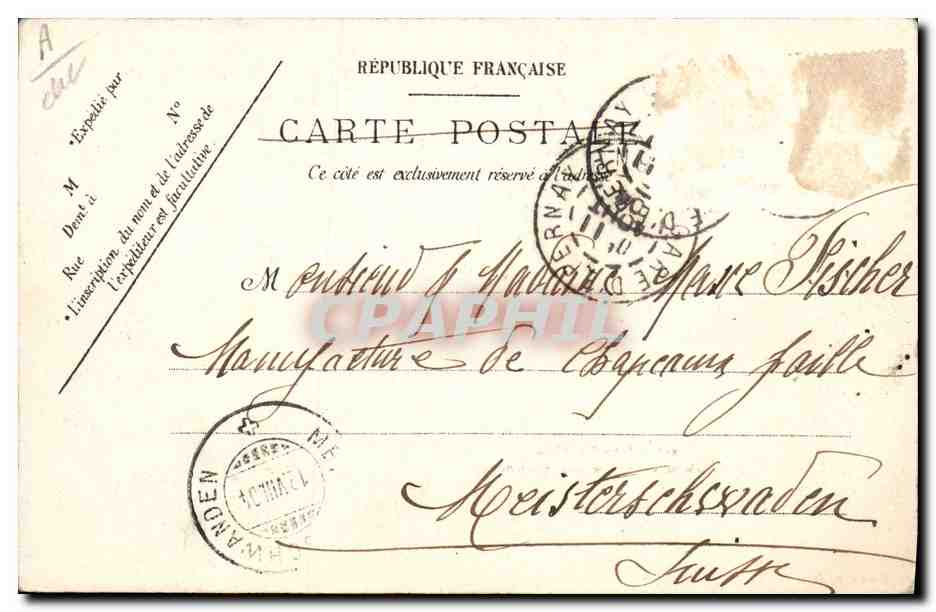 A
RÉPUBLIQUE FRANÇAISE
CARTE POSTALE
Ce côté est exclusivement réservé à l'adresse
Expédié par
M
N°
Demt à
Rue
L'inscription du nom et de l'adresse de
l'expéditeur est facultative.
GARE D'EPERNAY
GARE D'EPERNAY
Monsieur & Madame Maxe Fischer
CPAPHIL
Manufacture de Chapeaux paille
Meisterschwaden
Suisse
MEI
SCHWANDEN
13.VIII.04